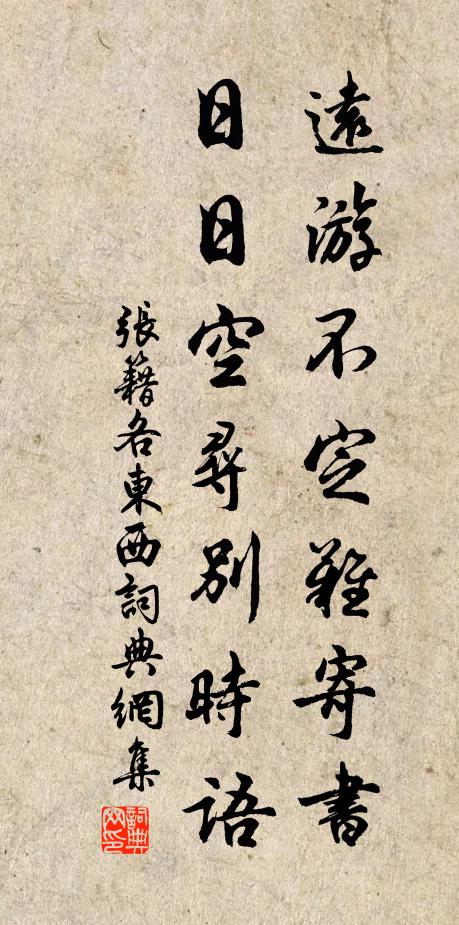 遠游不定難寄書
日日空尋別時語
張籍各東西詞典網集
詞典網印